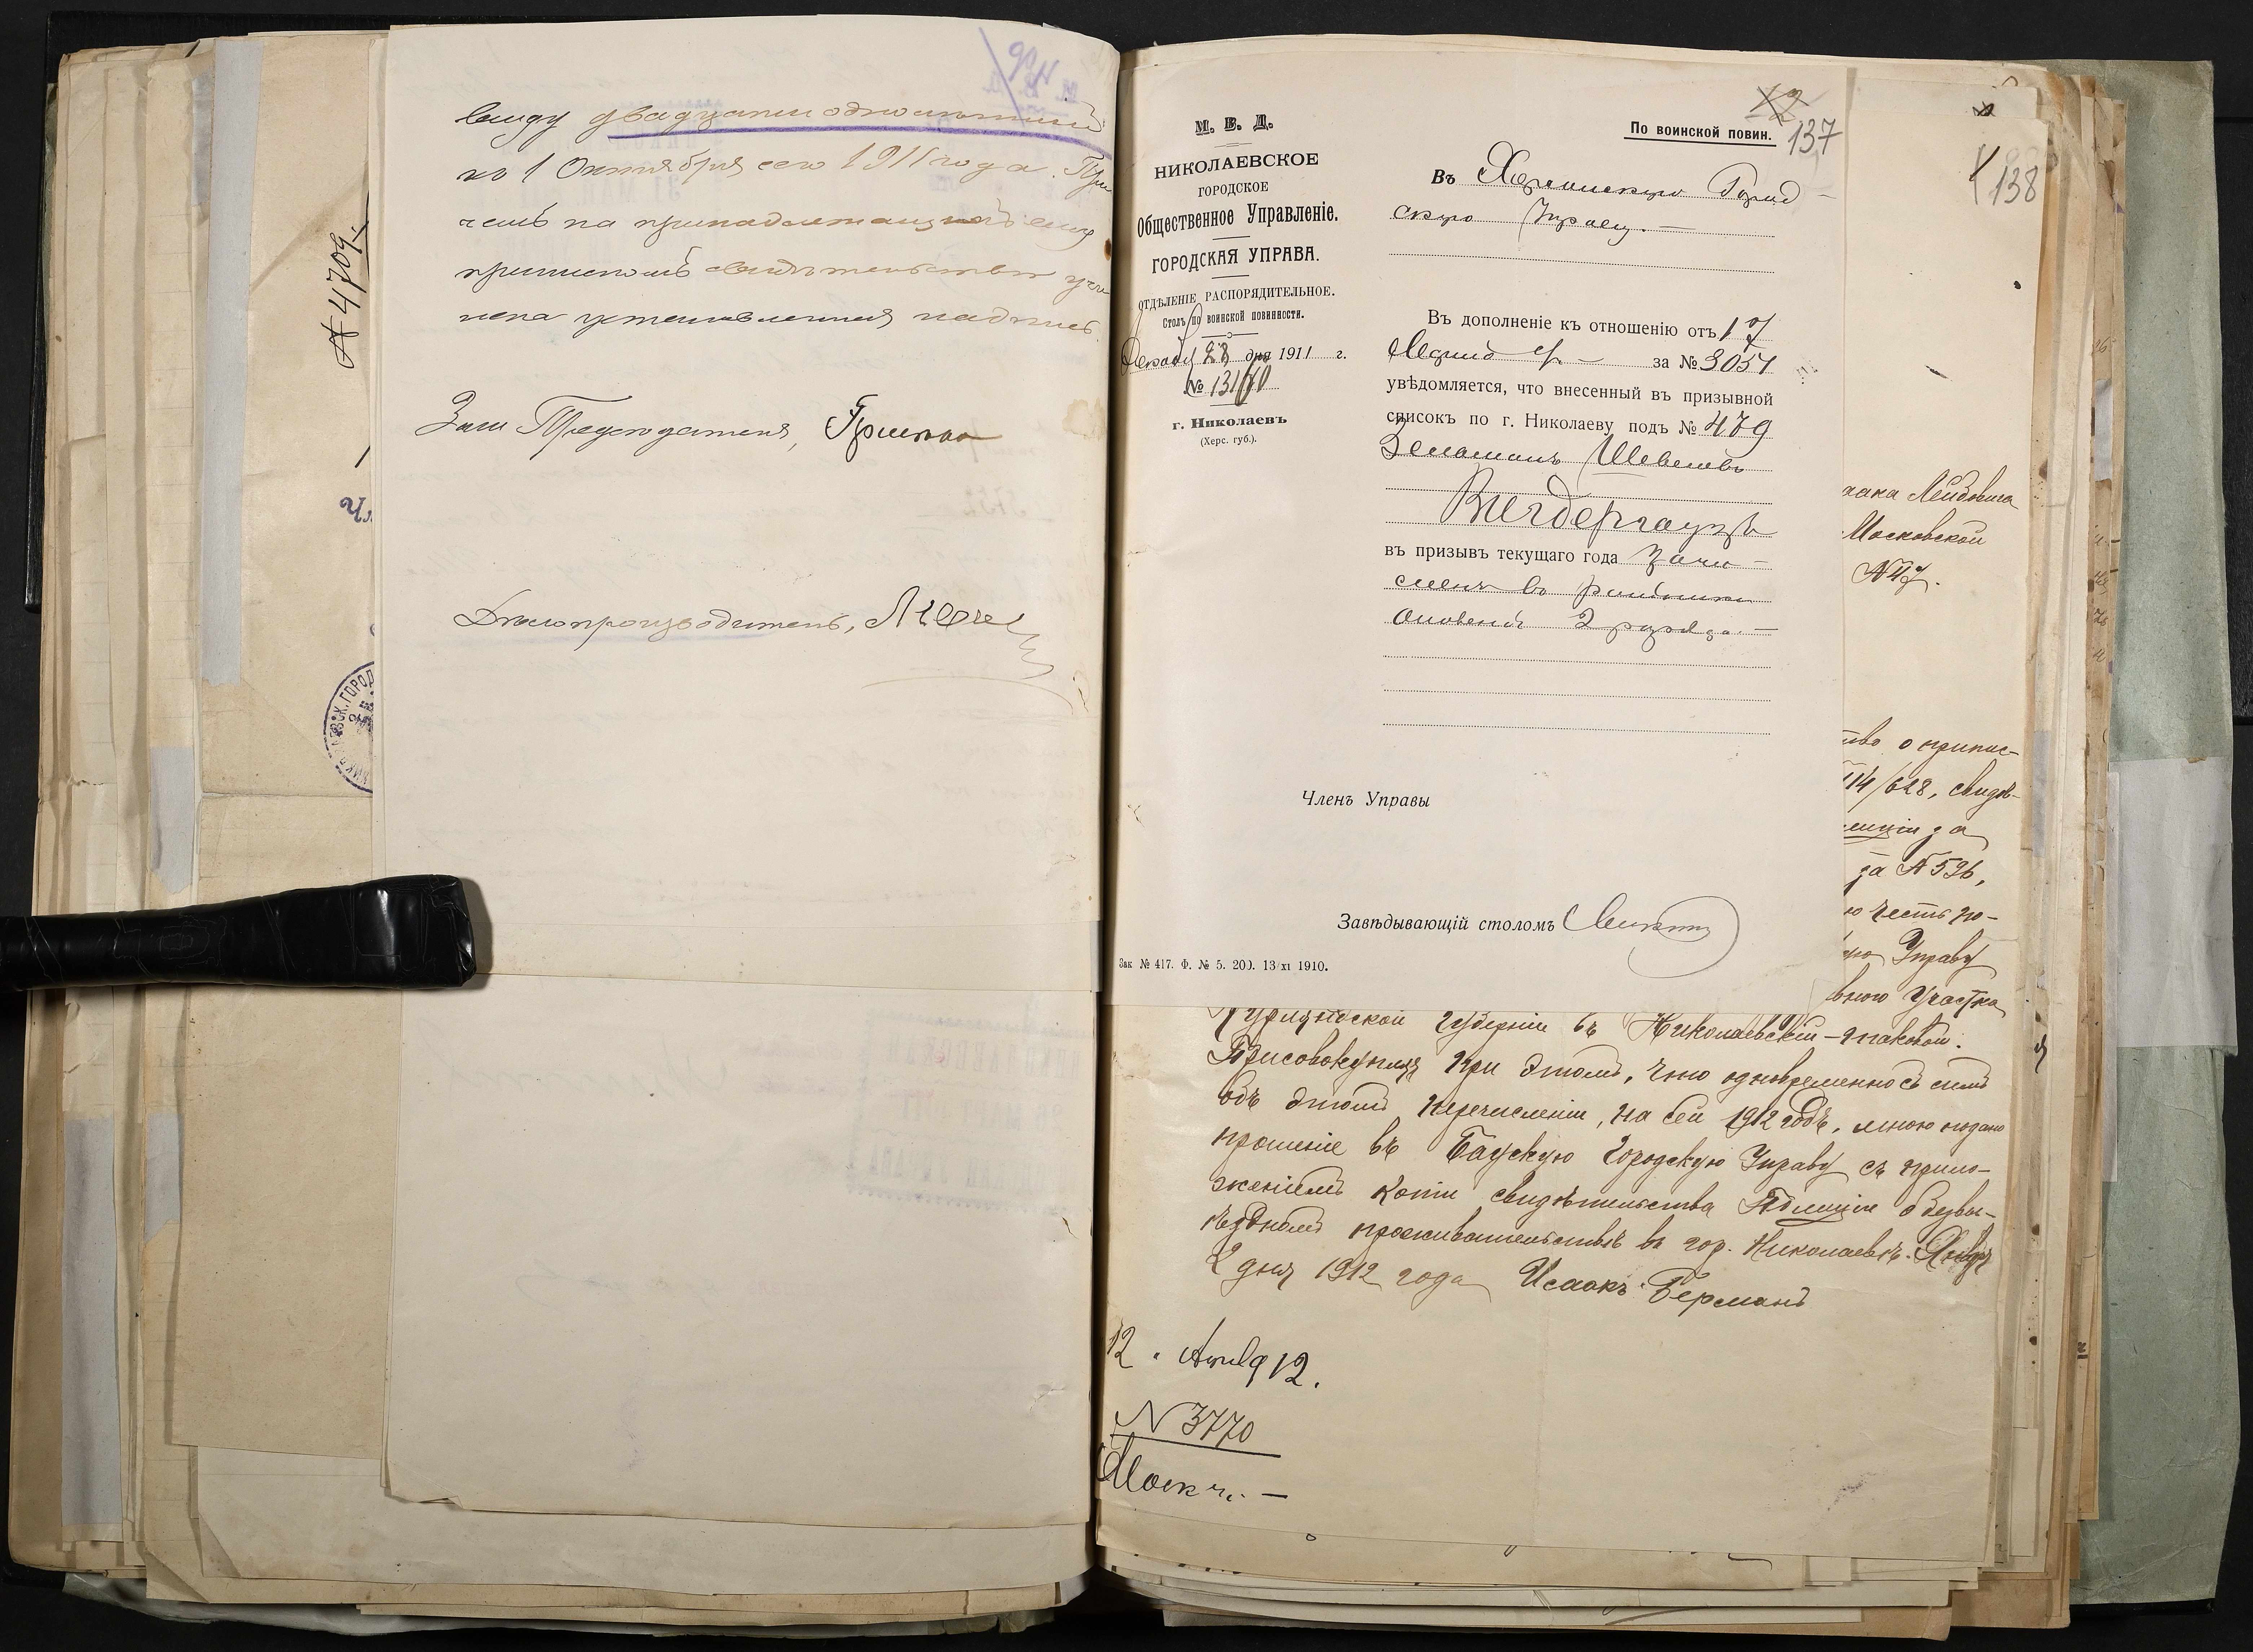 виду двадцати одного
къ 1 Октября сего 1911 года. При
чемъ на принадлежащемъ ему
приписномъ свидѣтельствѣ учи
нена установленная надпись.
Зам Предсѣдателя,
Дѣлопроизводитель,
№ 4709.
М. В. Д.
НИКОЛАЕВСКОЕ
ГОРОДСКОЕ
Общественное Управленіе.
ГОРОДСКАЯ УПРАВА.
ОТДѢЛЕНІЕ РАСПОРЯДИТЕЛЬНОЕ.
Столъ по воинской повинности.
Декабря 28 дня 1911 г.
№ 13170
г. Николаевъ
(Херс. губ.).
12
137
По воинской повин.
Въ Херсонскую Город
скую Управу.
Въ дополненіе къ отношенію отъ 17
за № 3051
увѣдомляется, что внесенный въ призывной
списокъ по г. Николаеву подъ № 479
Зельманъ Шевелевъ
Вигдергаузъ
въ призывъ текущаго года зачи-
сленъ въ ратники
ополченія 2 разряда.
Членъ Управы
Завѣдывающій столомъ
Зак № 417. Ф. № 5. 200. 13/XI 1910.
138
аака Лейбовича
Московской
№ 47.
тво о припис-
114/628, свидѣ-
лиціи за
за № 536,
ю честь по-
ую Управу
вного участка
Курляндской губерніи въ Николаевскій-таковой.
Присовокупляя при этомъ, что одновременно съ симъ
объ этомъ перечисленіи, на сей 1912 годъ, мною подано
прошеніе въ Баускую Городскую Управу съ прило-
женіемъ копіи свидѣтельства Полиціи о безвы-
ѣздномъ проживательствѣ въ гор. Николаевѣ. Января
2 дня 1912 года Исаакъ Берманъ
12
12.
№ 3770
Моск ч. —